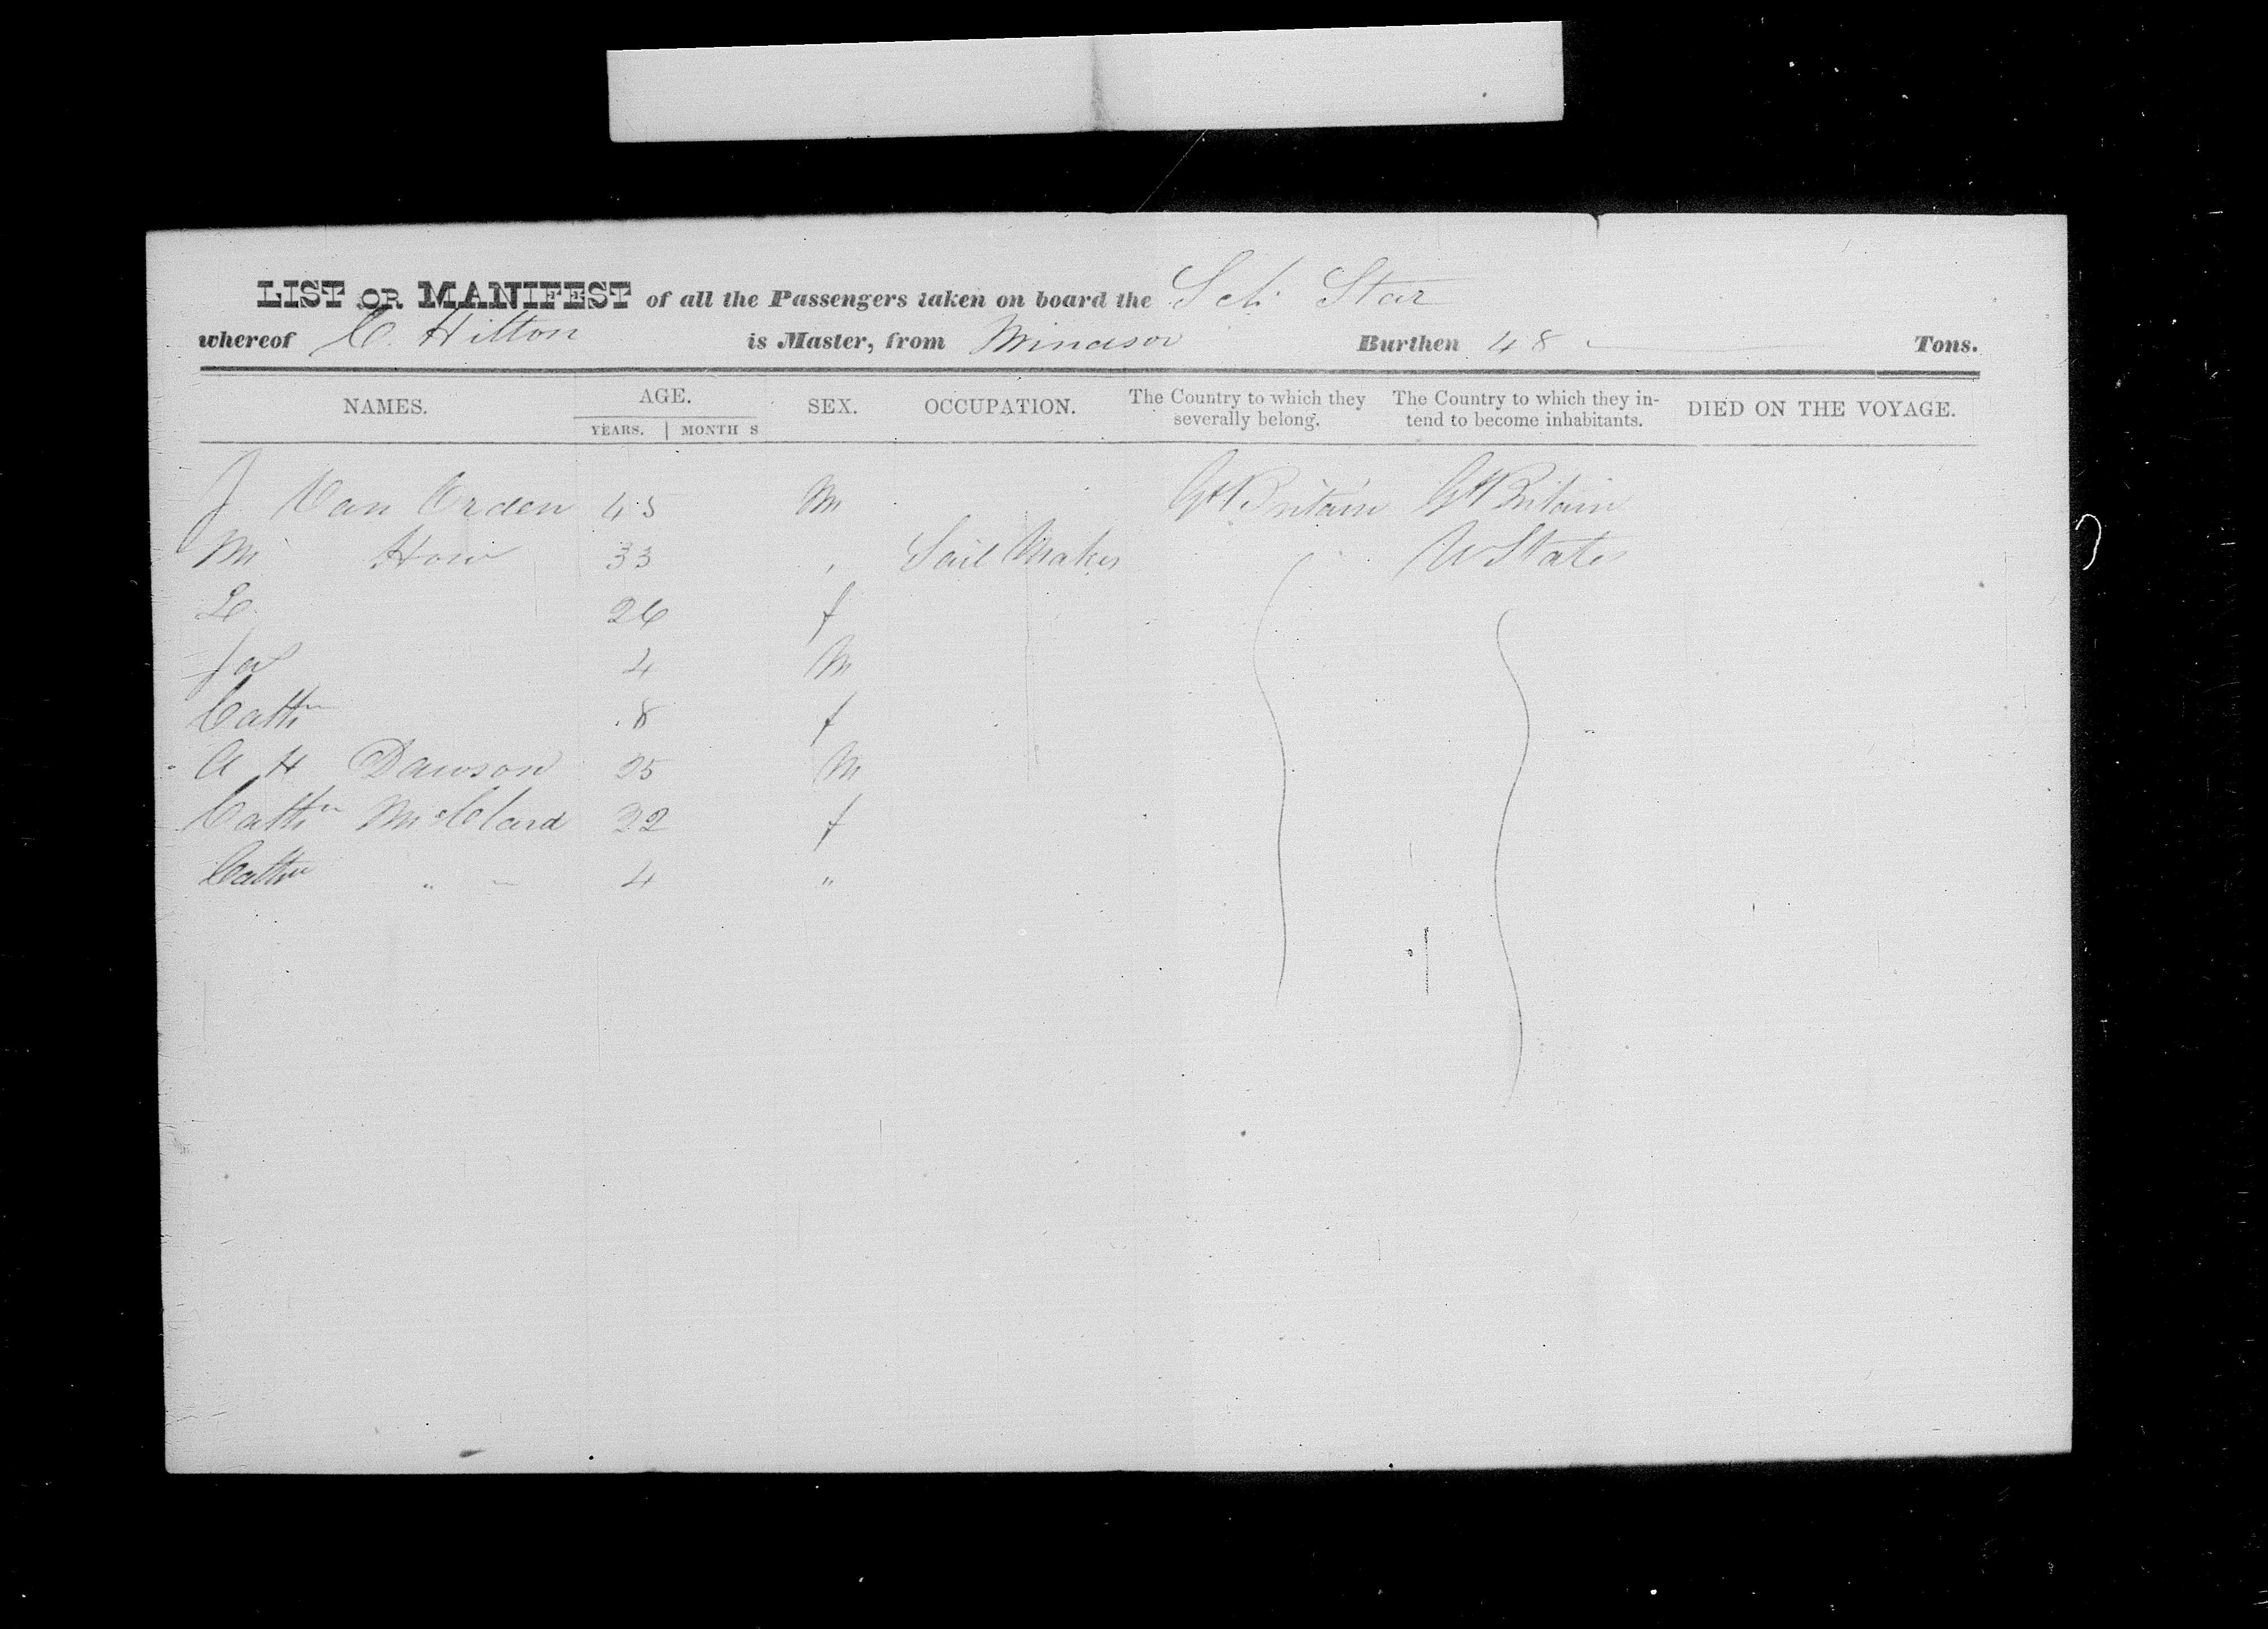 LIST OR MANIFEST of all the Passengers taken on board the Sch Star
whereof C. Hilton is Master, from Windsor Burthen 48 Tons.
NAMES. AGE. SEX. OCCUPATION. The Country to which they severally belong. The Country to which they intend to become inhabitants. DIED ON THE VOYAGE.
YEARS. | MONTHS
J Van Orden 45 M Gt Britain Gt Britain
M How 33 , Sail Maker U States
26 f
4 M
Cathn 8 f
A H Dawson 25 M
Cathn 32 f
Cathn " 4 "